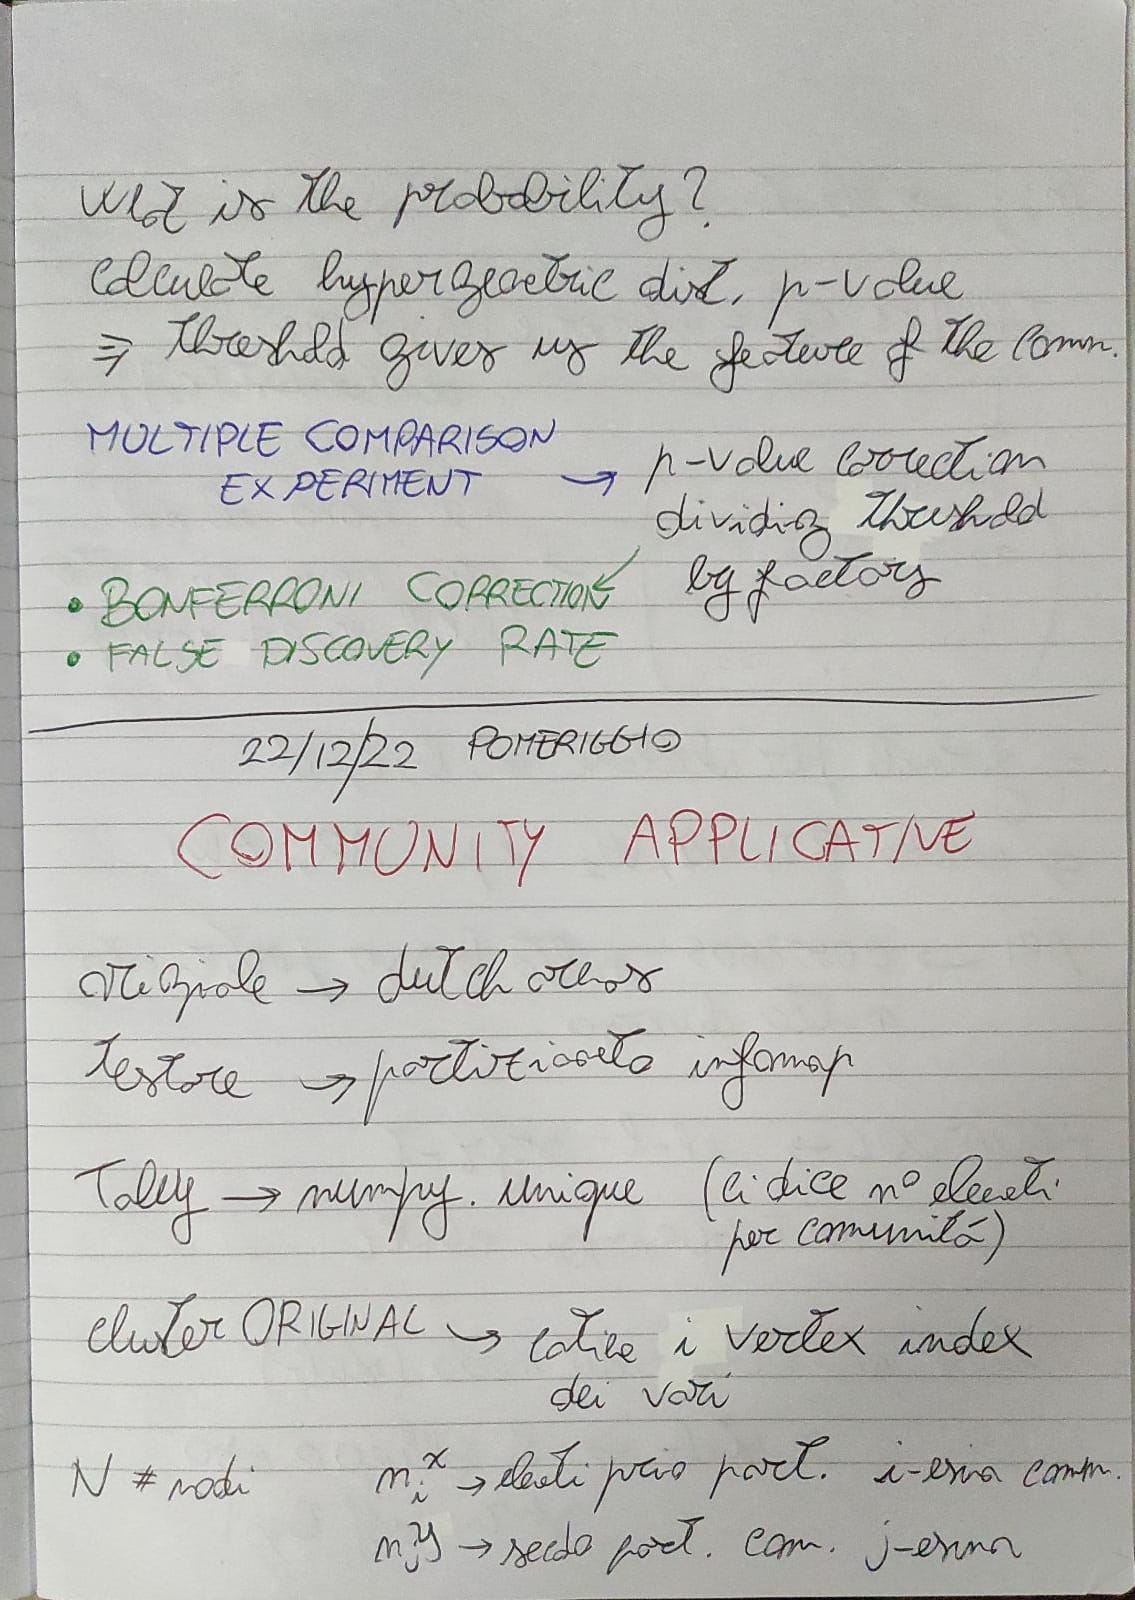 What is the probability?
Calculate hypergeometric dist. p-value
⇒ threshold gives us the feature of the comm.
MULTIPLE COMPARISON
EXPERIMENT → p-value correction
dividing threshold
by factors
• BONFERRONI CORRECTION ↙
• FALSE DISCOVERY RATE
22/12/22 POMERIGGIO
COMMUNITY APPLICATIVE
originale →
testare → partizionato infomap
Tally → numpy.unique (ci dice n° elementi
per comunitá)
cluster ORIGINAL → i vertex index
dei vari
N # nodi n_i^x → elementi primo part. i-esima comm.
n_j^y → secondo part. com. j-esima